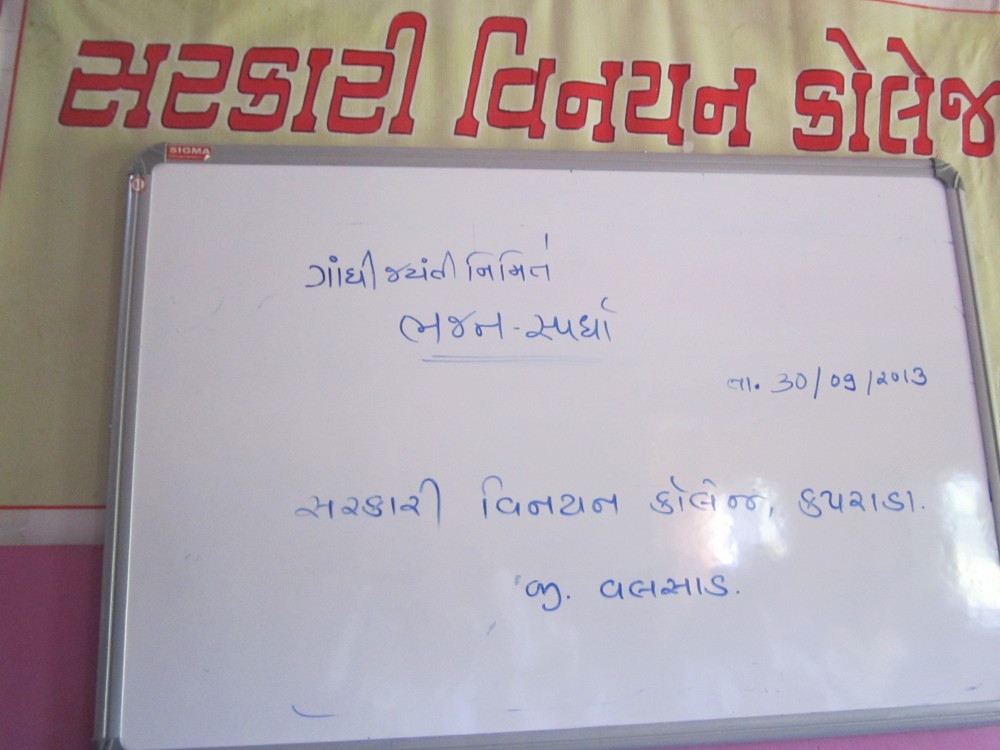 સરકારી વિનયન કોલેજ
SIGMA
ગાંધી જયંતી નિમિતે
ભજન-સ્પર્ધા
તા. 30/09/2013
સરકારી વિનયન કોલેજ, કપરાડા.
જી. વલસાડ.